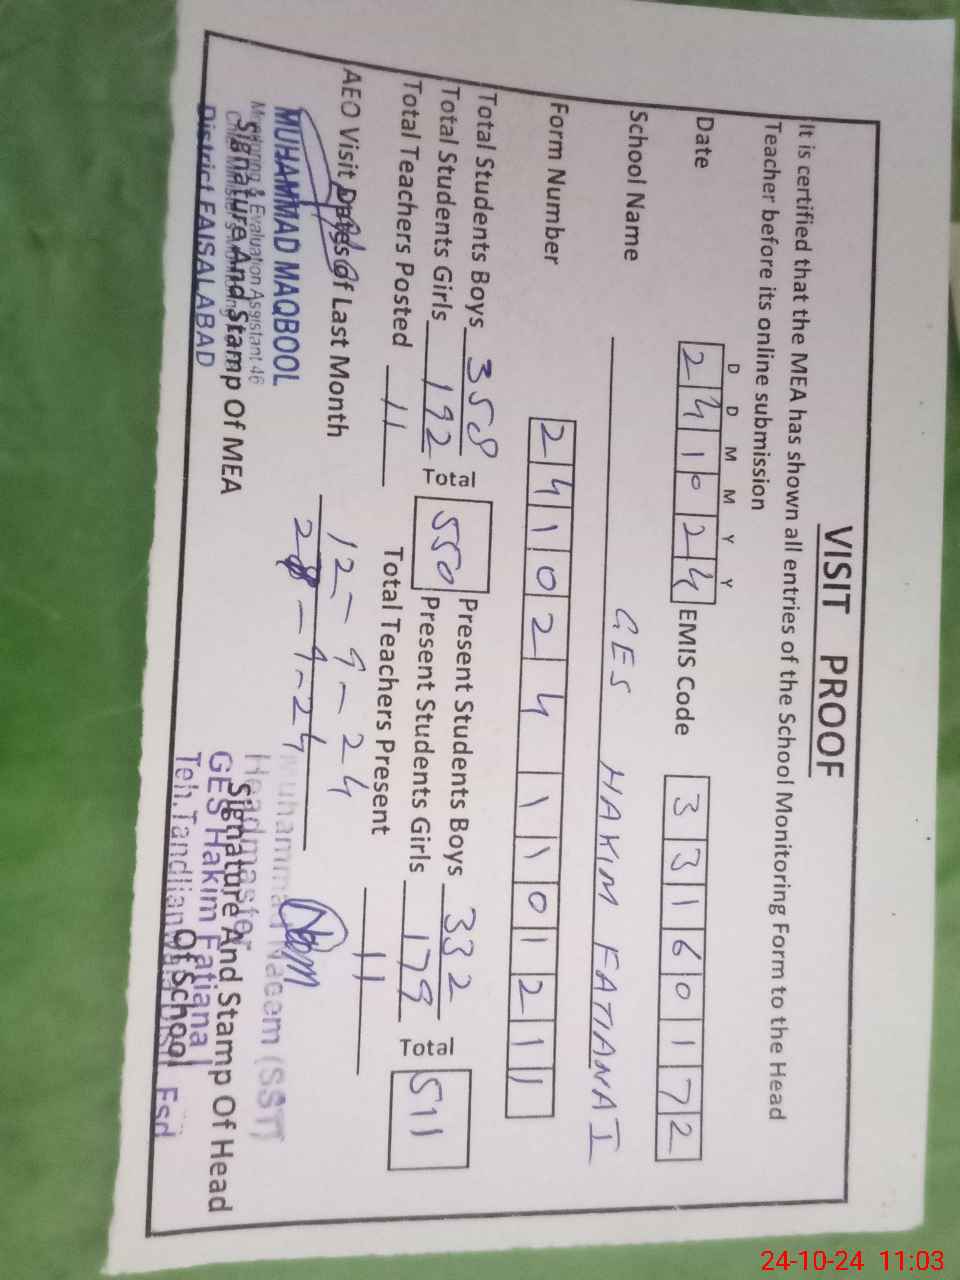 VISIT PROOF
It is certified that the MEA has shown all entries of the School Monitoring Form to the Head
Teacher before its online submission
D D M M Y Y
Date 2 4 1 0 2 4 EMIS Code 3 3 1 6 0 1 7 2
School Name GES HAKIM FATIANA I
Form Number 2 4 1 0 2 4 1 1 0 1 2 1 1
Total Students Boys 358 Present Students Boys 332
Total 550 Total 511
Total Students Girls 192 Present Students Girls 179
Total Teachers Posted 11 Total Teachers Present 11
AEO Visit Dates of Last Month 12-9-24
28-9-24
MUHAMMAD MAQBOOL Muhammad Naeem (SST)
Monitoring & Evaluation Assistant 46 Headmaster
Signature And Stamp Of MEA Signature And Stamp Of Head
Of School
District FAISALABAD GES Hakim Fatiana I
Teh. Tandlianwala Distt Fsd
24-10-24 11:03